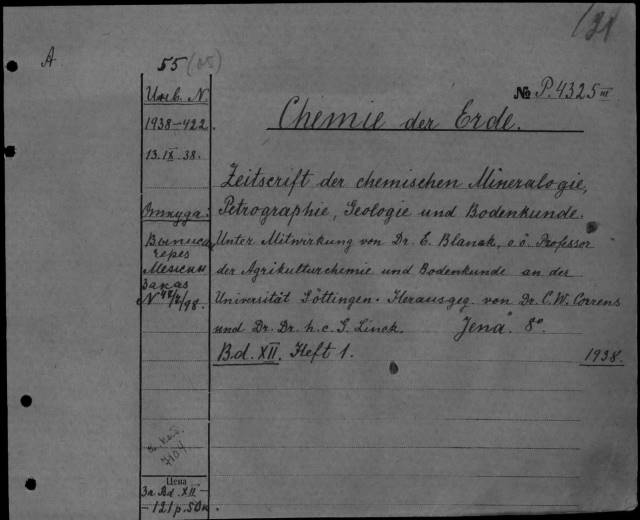 A
55 (05)
№ P.4325 III
Инв. N.
1938-422.
13.IX.38.
Chemie der Erde.
Zeitscrift der chemischen Mineralogie,
Откуда:
Petrographie, Geologie und Bodenkunde.
Выписан
через
Межкн
Заказ
Unter Mitwirkung von Dr. E. Blanck, o.ö. Professor
der Agrikulturchemie und Bodenkunde an der
Universität Göttingen. Herausgeg. von Dr. C.W. Correns
und Dr. Dr. h.c. G. Linck. Jena. 8°.
Bd. XII. Heft 1. 1938.
7104
Цена
За Bd. XII
- 121 р. 50к.